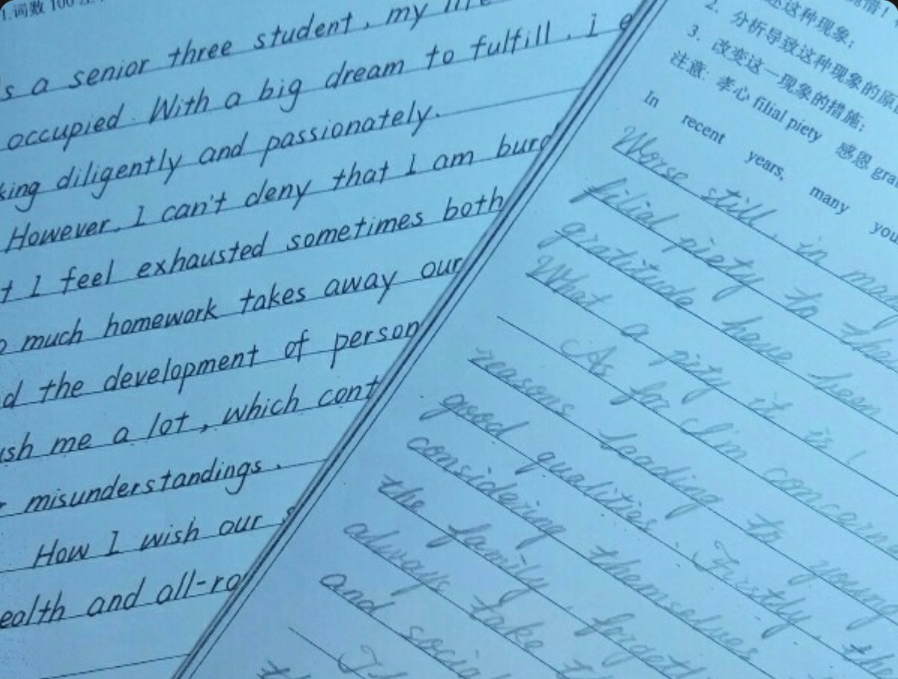 1.词数100
s a senior three student, my
occupied. With a big dream to fulfill. I
king diligently and passionately.
However, I can't deny that I am burd
t I feel exhausted sometimes both
o much homework takes away our
d the development of person
ush me a lot, which cont
misunderstandings.
How I wish our
ealth and all-ro
述这种现象;
2. 分析导致这种现象的原
3. 改变这一现象的措施;
注意: 孝心 filial piety 感恩 gra
In recent years, many you
Worse still, in man
filial piety to the
gratitude have been
What a pity it is!
As for I'm concerne
reasons leading to young
good qualities. Firstly, the
considering themselves
the family forget
always take t
and socia